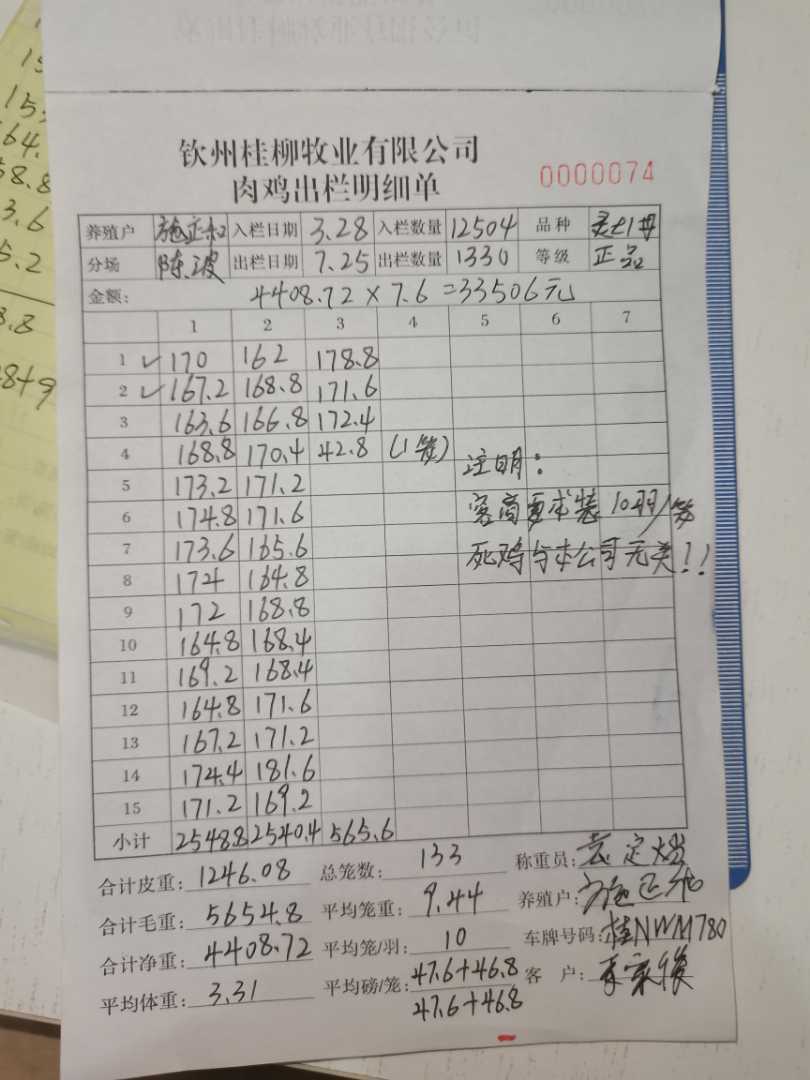 钦州桂柳牧业有限公司
肉鸡出栏明细单
0000074
养殖户 施正和 入栏日期 3.28 入栏数量 12504 品种
分场 陈波 出栏日期 7.25 出栏数量 1330 等级 正品
金额: 4408.72×7.6=33506元
1 2 3 4 5 6 7
1 ✓ 170 162 178.8
2 ✓ 167.2 168.8 171.6
3 163.6 166.8 172.4
4 168.8 170.4 42.8 (1笼)
注明:
5 173.2 171.2
6 174.8 171.6
客商要求装10羽/笼
7 173.6 165.6
死鸡与本公司无关!!
8 174 164.8
9 172 168.8
10 164.8 168.4
11 169.2 168.4
12 164.8 171.6
13 167.2 171.2
14 174.4 181.6
15 171.2 169.2
小计 2548.8 2540.4 565.6
合计皮重: 1246.08 总笼数: 133 称重员:
合计毛重: 5654.8 平均笼重: 9.44 养殖户:
合计净重: 4408.72 平均笼/羽: 10 车牌号码: 桂NWM780
平均体重: 3.31 平均磅/笼: 47.6+46.8 客 户:
47.6+46.8
15
15
64.
58.8
3.6
5.2
8.8
8+9